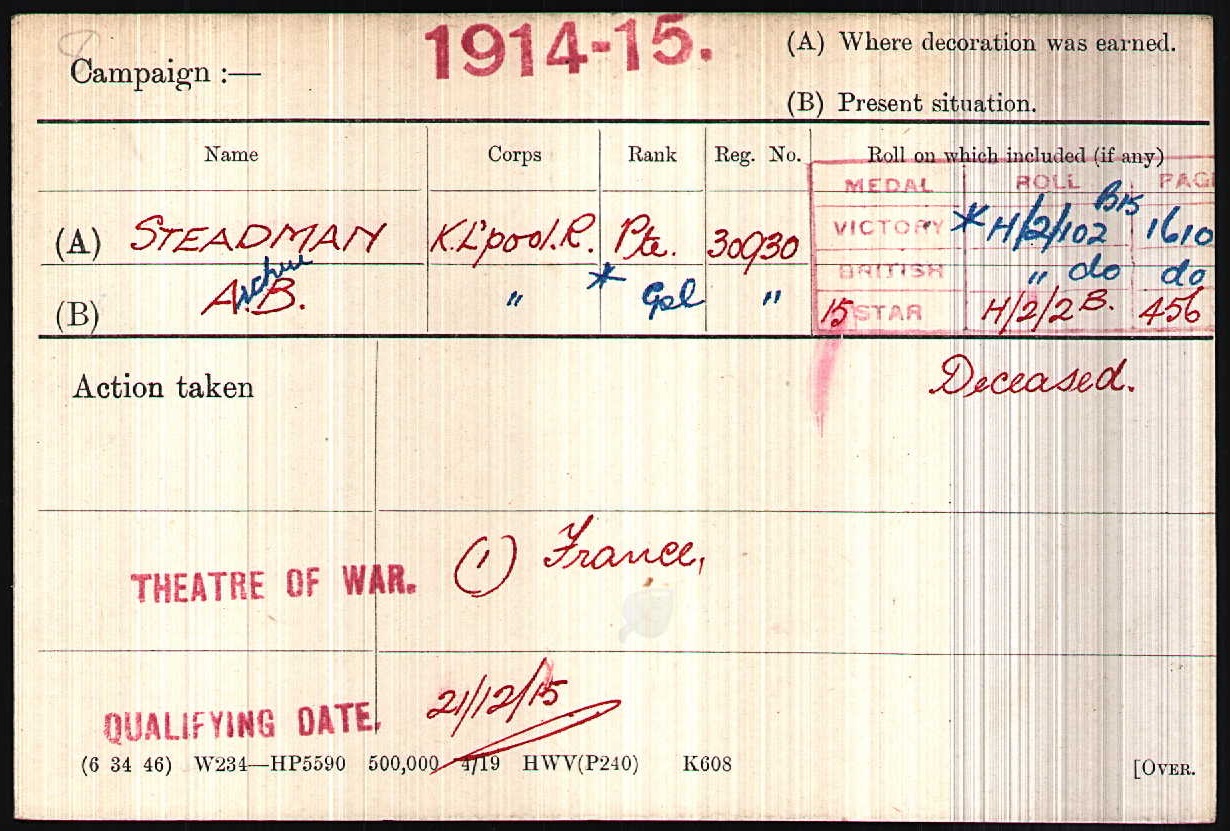 1914-15.
(A) Where decoration was earned.
Campaign :—
(B) Present situation.
Name Corps Rank Reg. No. Roll on which included (if any)
MEDAL ROLL PAGE
(A) STEADMAN K.L'pool.R. Pte. 30930 VICTORY * H/2/102 B15 1610
BRITISH " do do
(B) A.B. " * Cpl " 15 STAR H/2/2 B. 456
Action taken Deceased.
THEATRE OF WAR. (1) France,
QUALIFYING DATE. 21/12/15
(6 34 46) W234—HP5590 500,000 4/19 HWV(P240) K608 [OVER.